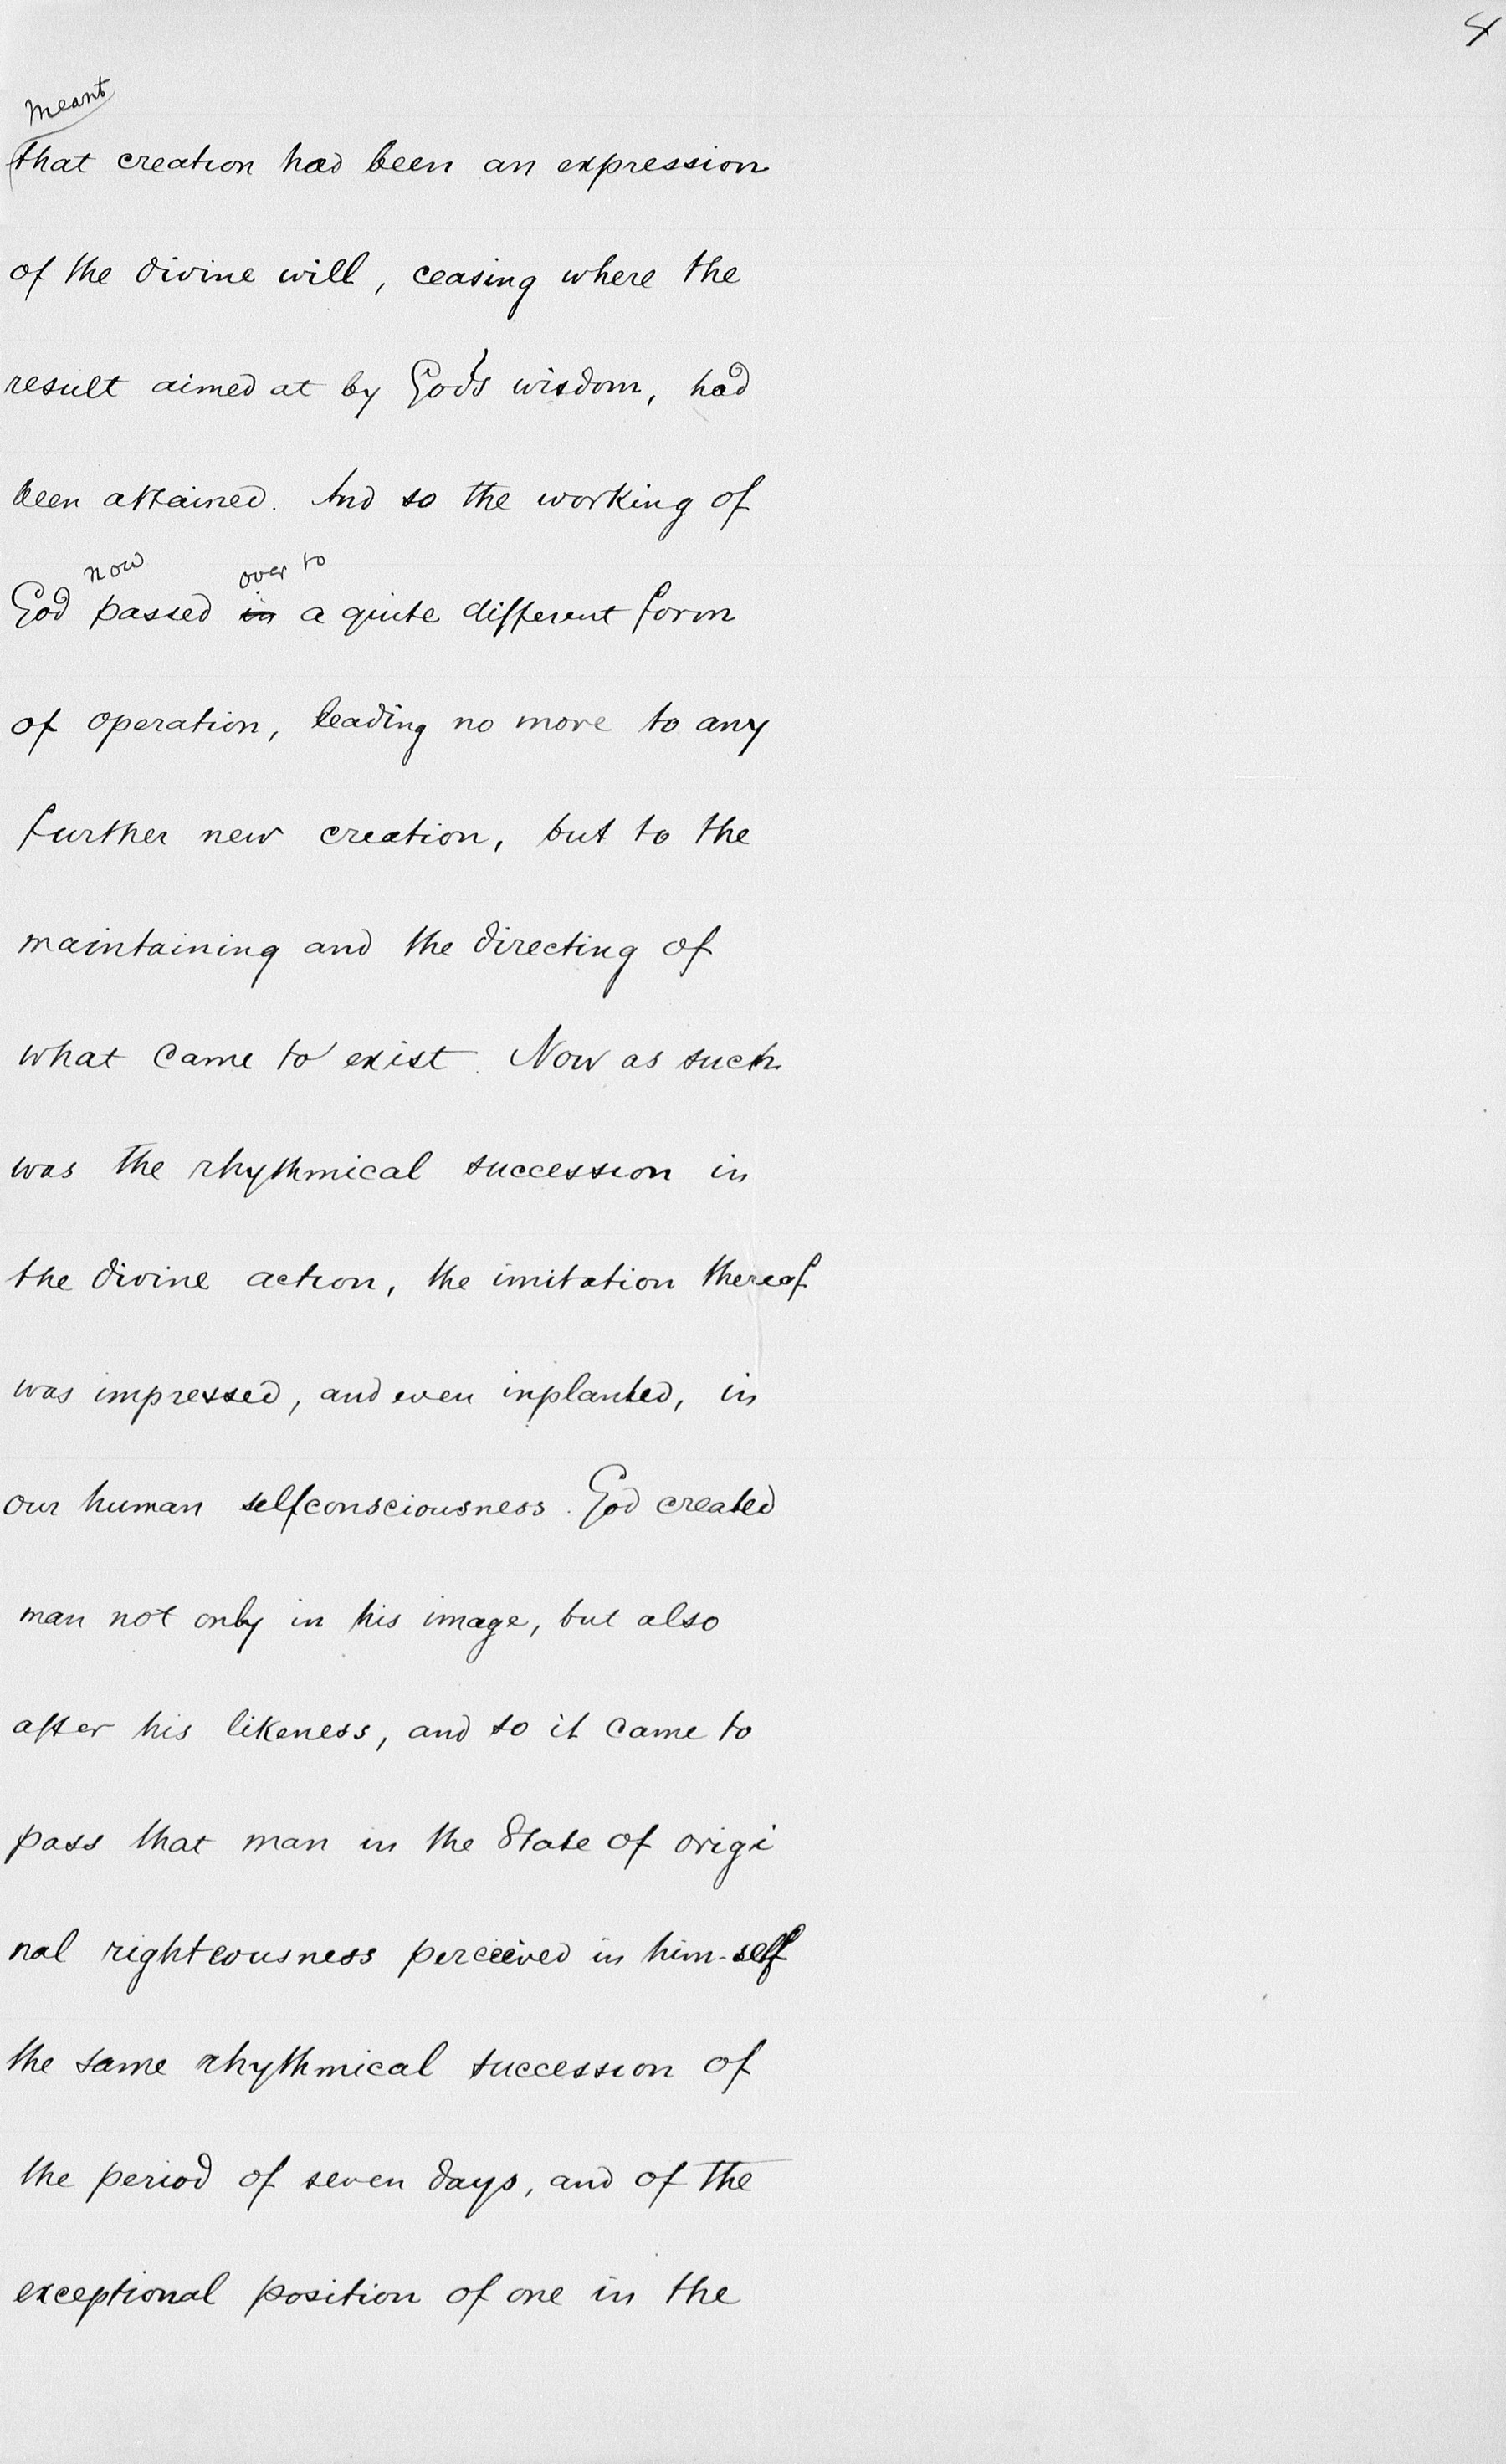 4
meant
that creation had been an expression
of the divine will, ceasing where the
result aimed at by God's wisdom, had
been attained. And so the working of
now over to
God passed in a quite different form
of operation, leading no more to any
further new creation, but to the
maintaining and the directing of
what came to exist. Now as such
was the rhythmical succession in
the divine action, the imitation thereof
was impressed, and even inplanted, in
our human selfconsciousness. God created
man not only in his image, but also
after his likeness, and so it came to
pass that man in the State of origi
nal righteousness perceived in him-self
the same rhythmical succession of
the period of seven days, and of the
exceptional position of one in the